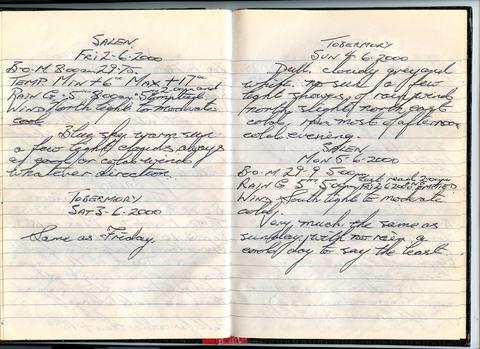 SALEN
FRI 2-6-2000
B-O-M 8-00am 29-70.
TEMP MIN +26° MAX +17°
RAIN G .5mm 8.00am
WIND North light to moderate
cool
Blue sky warm sun
a few light clouds always
a good or cold wind
whatever direction.
TOBERMORY
SAT 3-6-2000
Same as Friday.
TOBERMORY
SUN 4-6-2000
Dull, cloudy grey and
no sun a few
light showers of rain wind
north slight north east
cold rain most of afternoon
cold evening.
SALEN
MON 5-6-2000
B-O-M 29-9 5-00pm
RAIN G 5mm 5-00pm EMPTIED
WIND South light to moderate
cold.
Very much the same as
sunday with no rain a
cold day to say the least.